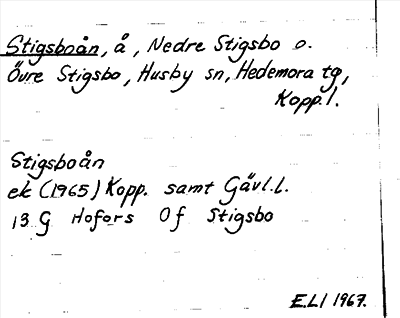 Stigsboån, å, Nedre Stigsbo o.
Övre Stigsbo, Husby sn, Hedemora tg,
Kopp. l.
Stigsboån
ek (1965) Kopp. samt Gävl.l.
13 G Hofors 0 f Stigsbo
E.L.I 1967.